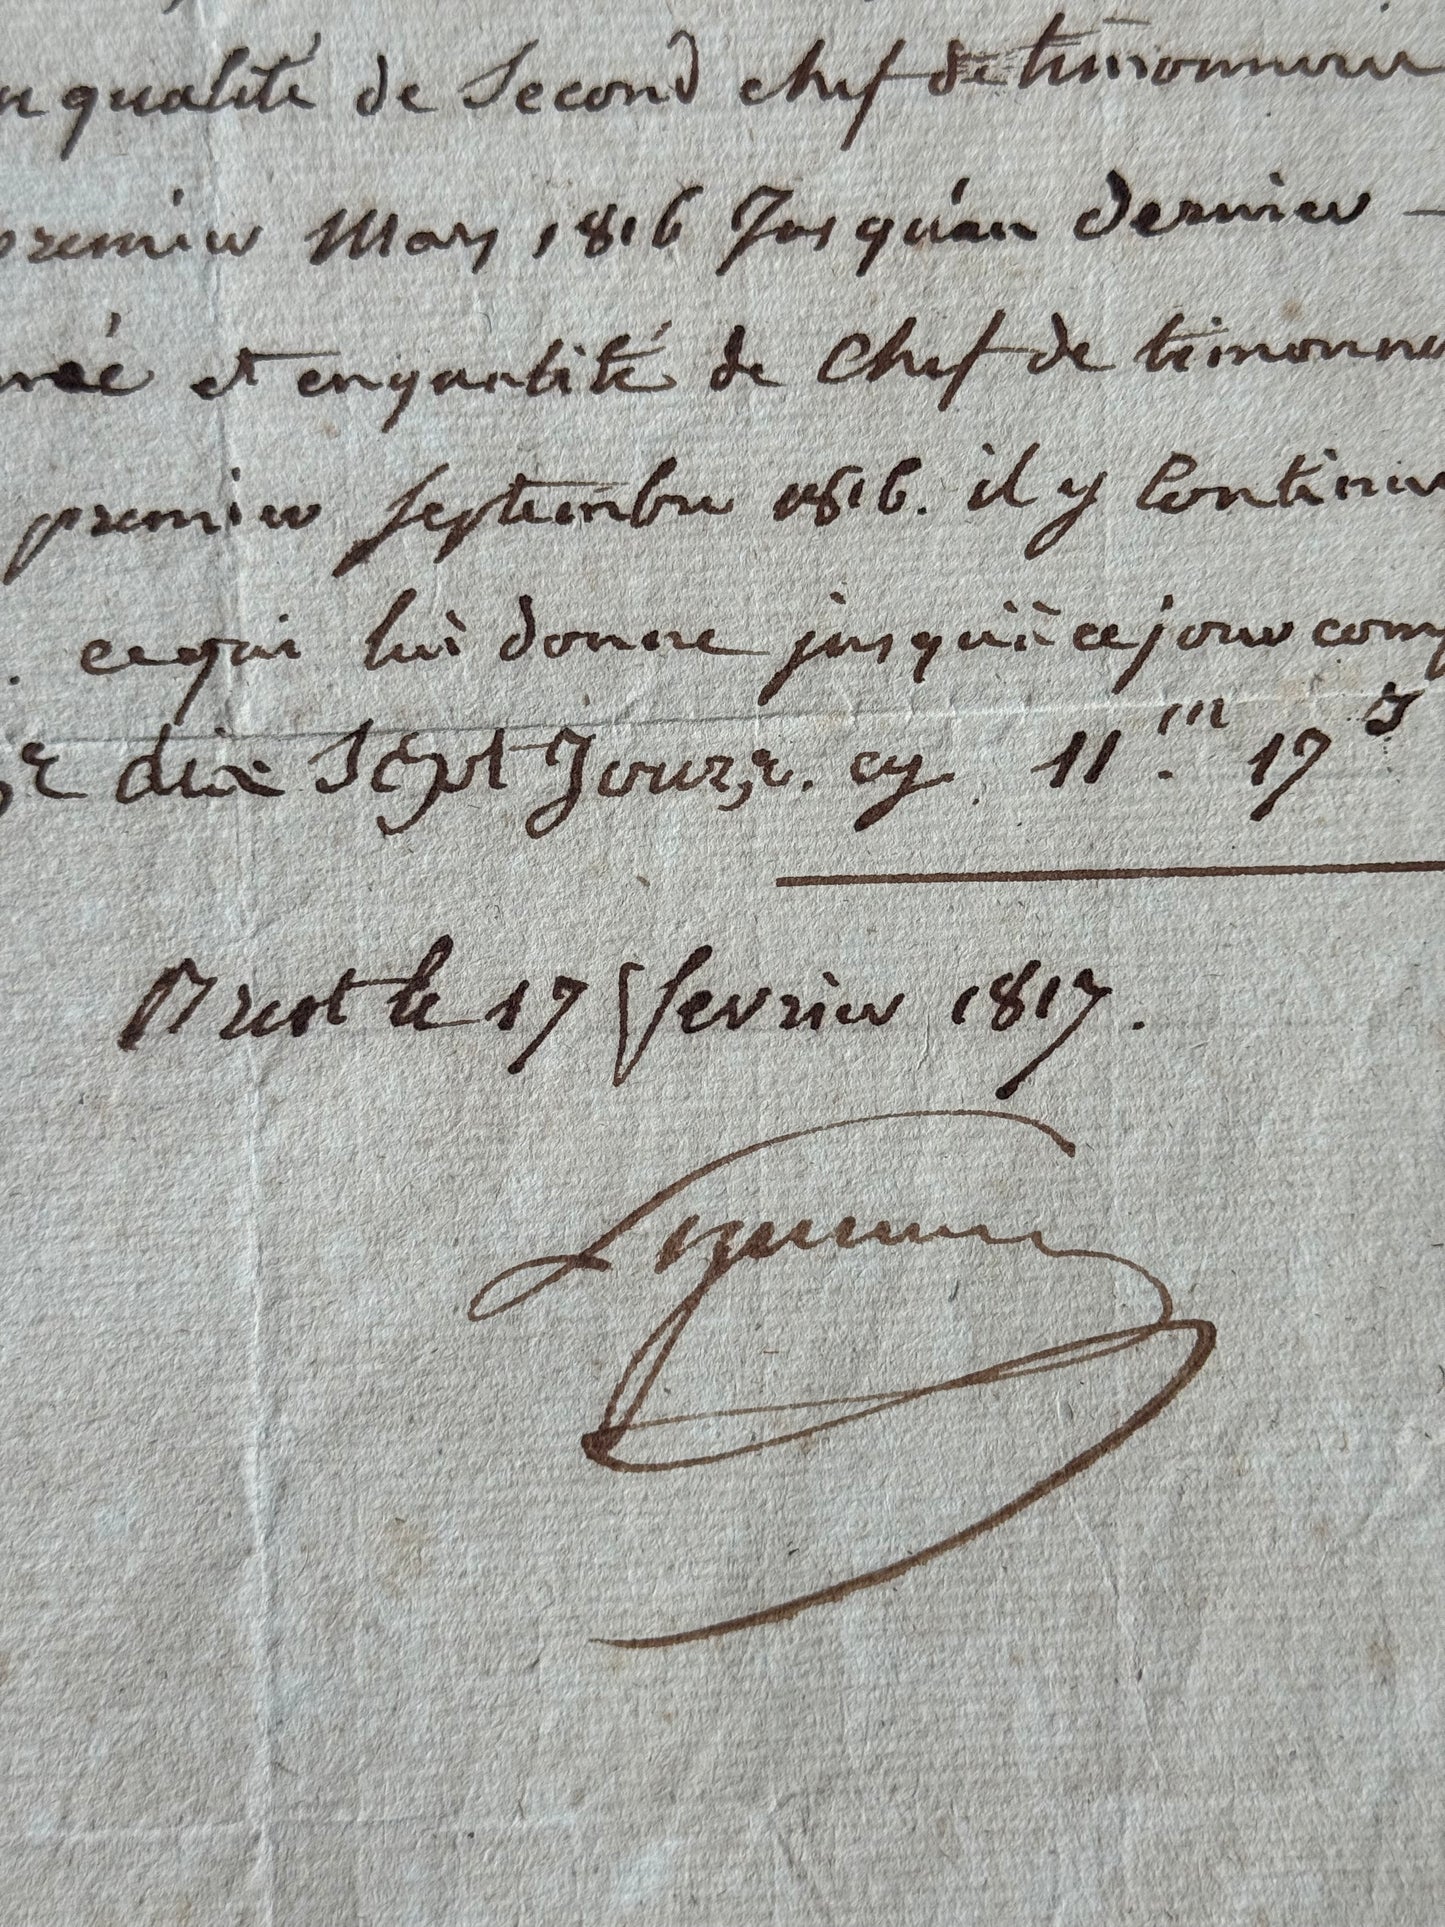 qualité de Second chef de timonnerie
premier May 1816 Jusqu'au dernier –
et en qualité de Chef de timonne
premier septembre 1816. il y Continue
. ce qui lui donne jusqu'à ce jour comp
dix Sept Jours, cy. 11.m 17 J
Brest le 17 fevrier 1817.